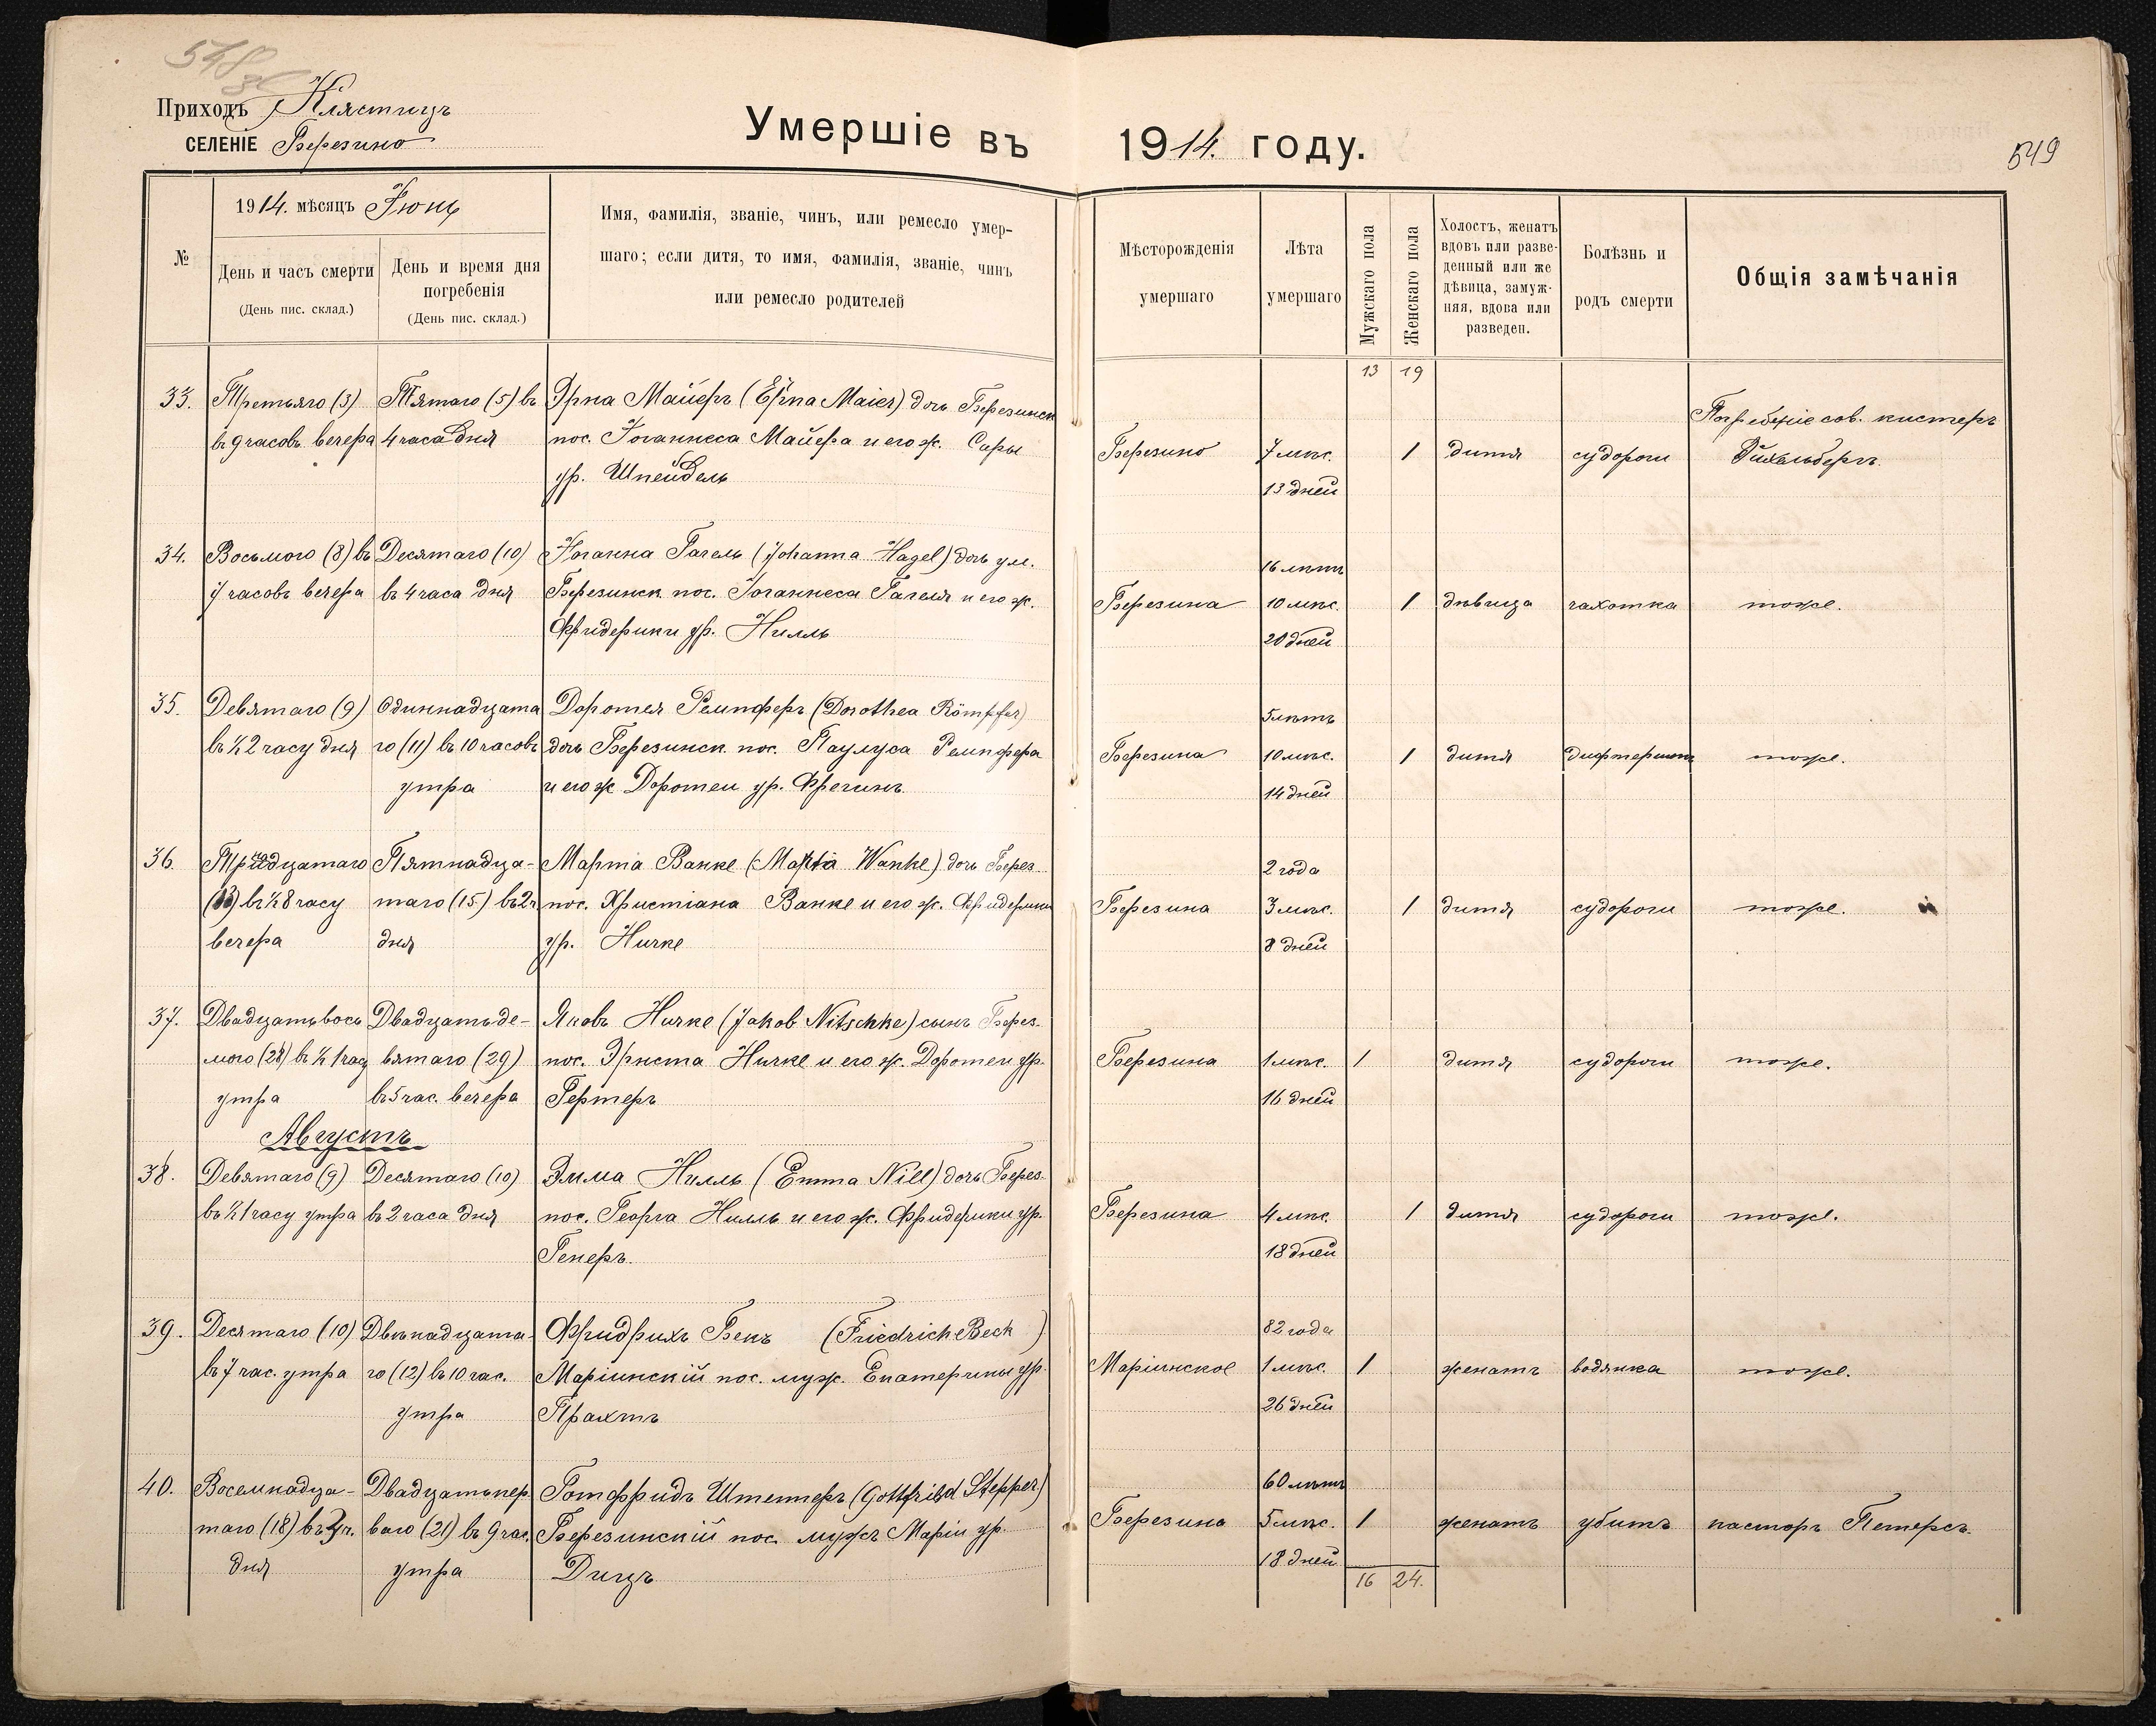 548
Приходъ Клястицъ
СЕЛЕНІЕ Березино
Умершіе въ 1914. году.
549
№
1914. мѣсяцъ
День и часъ смерти
(День пис. склад.)
День и время дня погребенія
(День пис. склад.)
Имя, фамилія, званіе, чинъ, или ремесло умер-
шаго; если дитя, то имя, фамилія, званіе, чинъ
или ремесло родителей
Мѣсторожденія
умершаго
Лѣта
умершаго
Мужскаго пола
Женскаго пола
Холостъ, женатъ
вдовъ или разве-
денный или же
дѣвица, замуж-
няя, вдова или
разведен.
Болѣзнь и
родъ смерти
Общія замѣчанія
13 19
33. Третьяго (3) Пятаго (5) въ Эрна Майеръ (Erna Maier) дочь Березинск
Погребеніе сов. кистеръ
въ 9 часовъ вечера 4 часа дня пос. Іоганнеса Майера и его ж. Сары Березино 7 мѣс. 1 дитя судороги
ур. Шпейдель 13 дней
34. Восьмого (8) въ Десятаго (10) Іоганна Гагель (Johanna Hagel) дочь ум. 16 лѣтъ
7 часовъ вечера въ 4 часа дня Березинск. пос. Іоганнеса Гагеля и его ж. Березина 10 мѣс. 1 дѣвица чахотка тоже.
Фридерики ур. Нилль 20 дней
35. Девятаго (9) Одиннадцата Доротея Ремпферъ (Dorothea Römpfer) 5 лѣтъ
въ ½ 2 часу дня го (11) въ 10 часовъ дочь Березинск. пос. Паулуса Ремпфера Березина 10 мѣс. 1 дитя тоже.
утра и его ж Доротеи ур. Фрегинъ 14 дней
36. Пятнадца- Марта Ванке (Marta Wanke) дочь Берез. 2 года
въ ½ 8 часу таго (15) въ 2 ч пос. Христіана Ванке и его ж. Фридерики Березина 3 мѣс. 1 дитя судороги тоже.
вечера дня ур. Ничке 8 дней
37. Двадцать вось Двадцать де- Яковъ Ничке (Jakob Nitschke) сынъ Берез.
мого (28) въ ½ 1 часу вятаго (29) пос. Эрнста Ничке и его ж. Доротеи ур. Березина 1 мѣс. 1 дитя судороги тоже.
утра въ 5 час. вечера Гертеръ 16 дней
Августъ
38. Девятаго (9) Десятаго (10) Эмма Нилль (Emma Nill) дочь Берез.
въ ½ 1 часу утра въ 2 часа дня пос. Георга Нилль и его ж. Фридерики ур. Березина 4 мѣс. 1 дитя судороги тоже.
Генеръ. 18 дней
39. Десятаго (10) Двѣнадцата- Фридрихъ Бекъ (Friedrich Beck) 82 года
въ 7 час. утра го (12) въ 10 час. Маріинскій пос. муж. Екатерины ур. Маріинское 1 мѣс. 1 женатъ водянка тоже.
утра Прахтъ 26 дней
40. Восемнадца- Двадцать пер Готфридъ Штепперъ (Gottfried Stepper) 60 лѣтъ
таго (18) ваго (21) въ 9 час. Березинскій пос. мужъ Маріи ур. Березино 5 мѣс. 1 женатъ убитъ пасторъ Петерсъ.
дня утра Дицъ 18 дней
16 24.